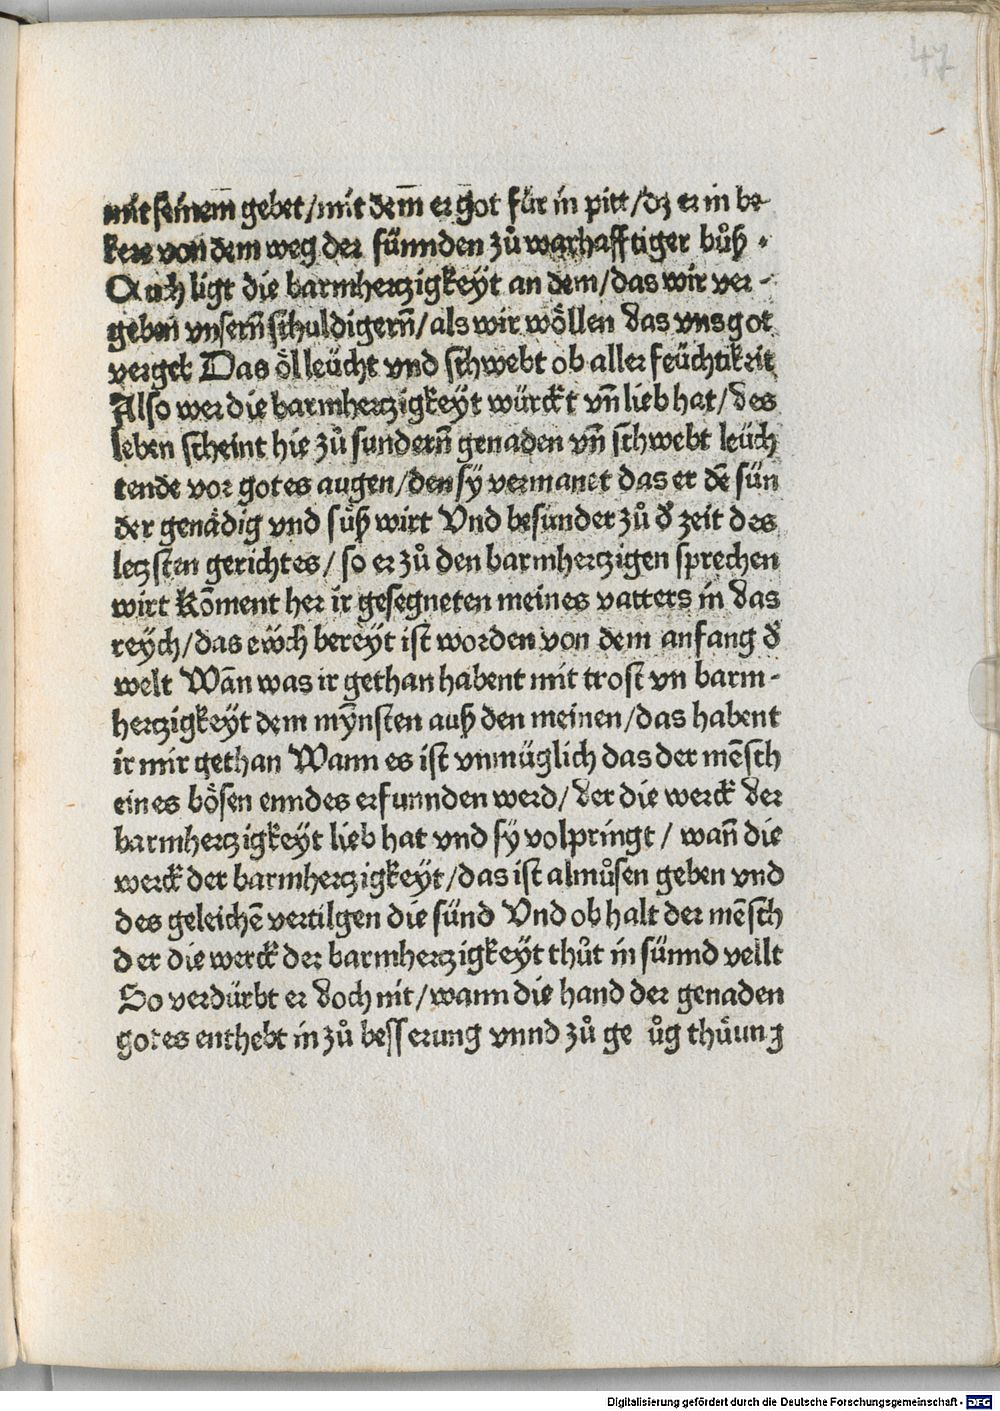 47
mit seinem̄ gebet/mit dem̄ er got für in pitt/dz er in be-
kere von dem weg der sünnden zů warhafftiger bůß .
Auch ligt die barmhertzigkeÿt an dem/das wir ver-
geben vnsern̄ schuldigern̄/als wir wöllen das vns got
vergeb Das öl leücht vnd schwebt ob aller feüchtikeit
Also wer die barmhertzigkeÿt würckt vn̄ lieb hat/des
leben scheint hie zů sundern̄ genaden vn̄ schwebt leüch
tende vor gotes augen/den sÿ vermanet das er dē sün
der genädig vnd süß wirt Vnd besunder zů đ zeit des
letzsten gerichtes/so er zů den barmhertzigen sprechen
wirt Kōment her ir gesegneten meines vatters in das
reÿch/das eẅch bereÿt ist worden von dem anfang đ
welt Wān was ir gethan habent mit trost vn barm-
hertzigkeÿt dem mÿnsten auß den meinen/das habent
ir mir gethan Wann es ist vnmüglich das der mēsch
eines bösen enndes erfunnden werd/der die werck der
barmhertzigkeÿt lieb hat vnd sÿ volpringt/wan̄ die
werck der barmhertzigkeÿt/das ist almůsen geben vnd
des geleichē vertilgen die sünd Vnd ob halt der mēsch
der die werck der barmhertzigkeÿt thůt in sünnd vellt
So verdürbt er doch nit/wann die hand der genaden
gotes enthebt in zů besserung vnnd zů ge ůg thüung
Digitalisierung gefördert durch die Deutsche Forschungsgemeinschaft - DFG